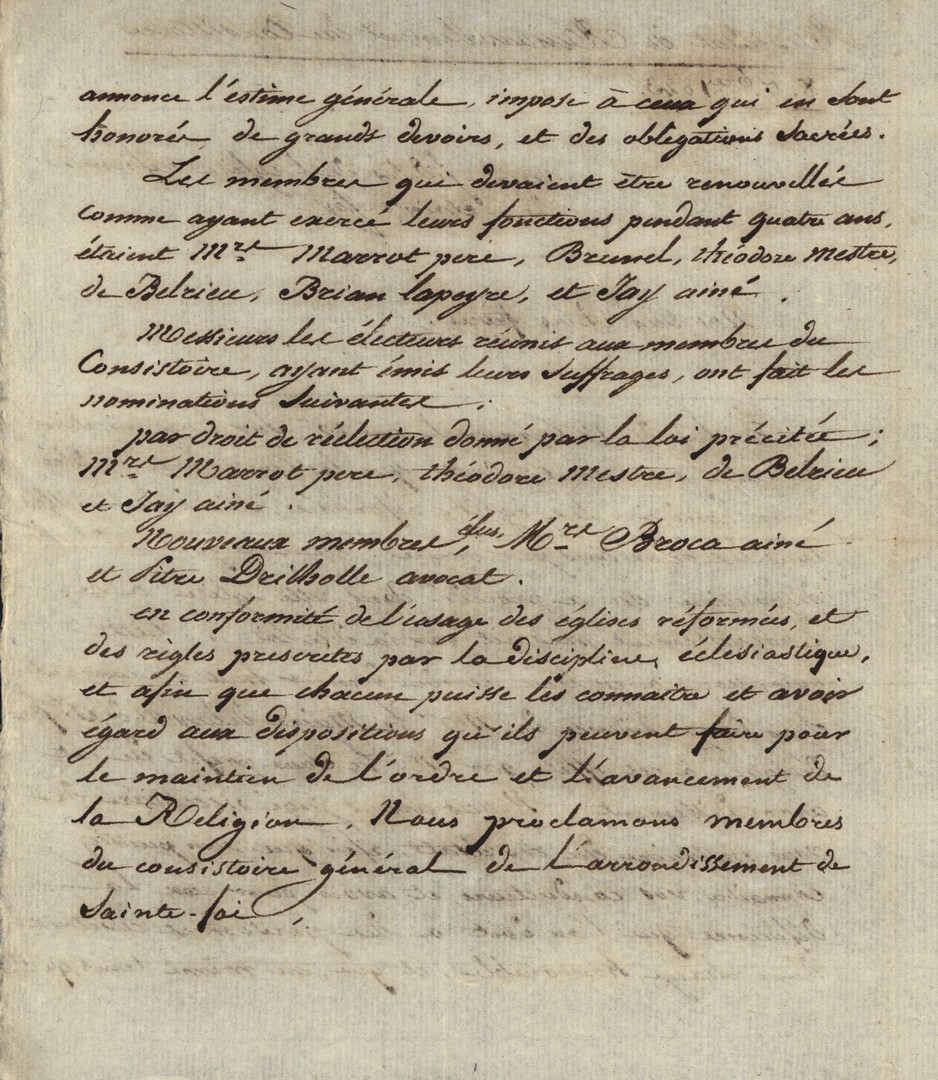 annonce l'estime générale, impose à ceux qui en sont
honorés, de grands devoirs, et des obligations sacrées.
Les membres qui devaient être renouvellés
comme ayant exercé leurs fonctions pendant quatre ans,
étaient Mrs Marrot pere, Brunel, théodore mestre,
de Belrieu, Brian lapeyre, et Jay ainé.
Messieurs les électeurs réunis aux membres du
Consistoire, ayant émis leurs suffrages, ont fait les
nominations suivantes;
par droit de réélection donné par la loi précitée;
Mrs Marrot pere, théodore Mestre, de Belrieu
et Jay ainé.
Nouveaux membres élus, Mrs Broca ainé
et Pitre Drilholle avocat.
en conformité de l'usage des églises réformées, et
des règles prescrites par la discipline éclésiastique,
et afin que chacun puisse les connaitre et avoir
égard aux dispositions qu'ils peuvent faire pour
le maintien de l'ordre et l'avancement de
la Religion, Nous proclamons membres
du consistoire général de l'arrondissement de
Sainte-foi.